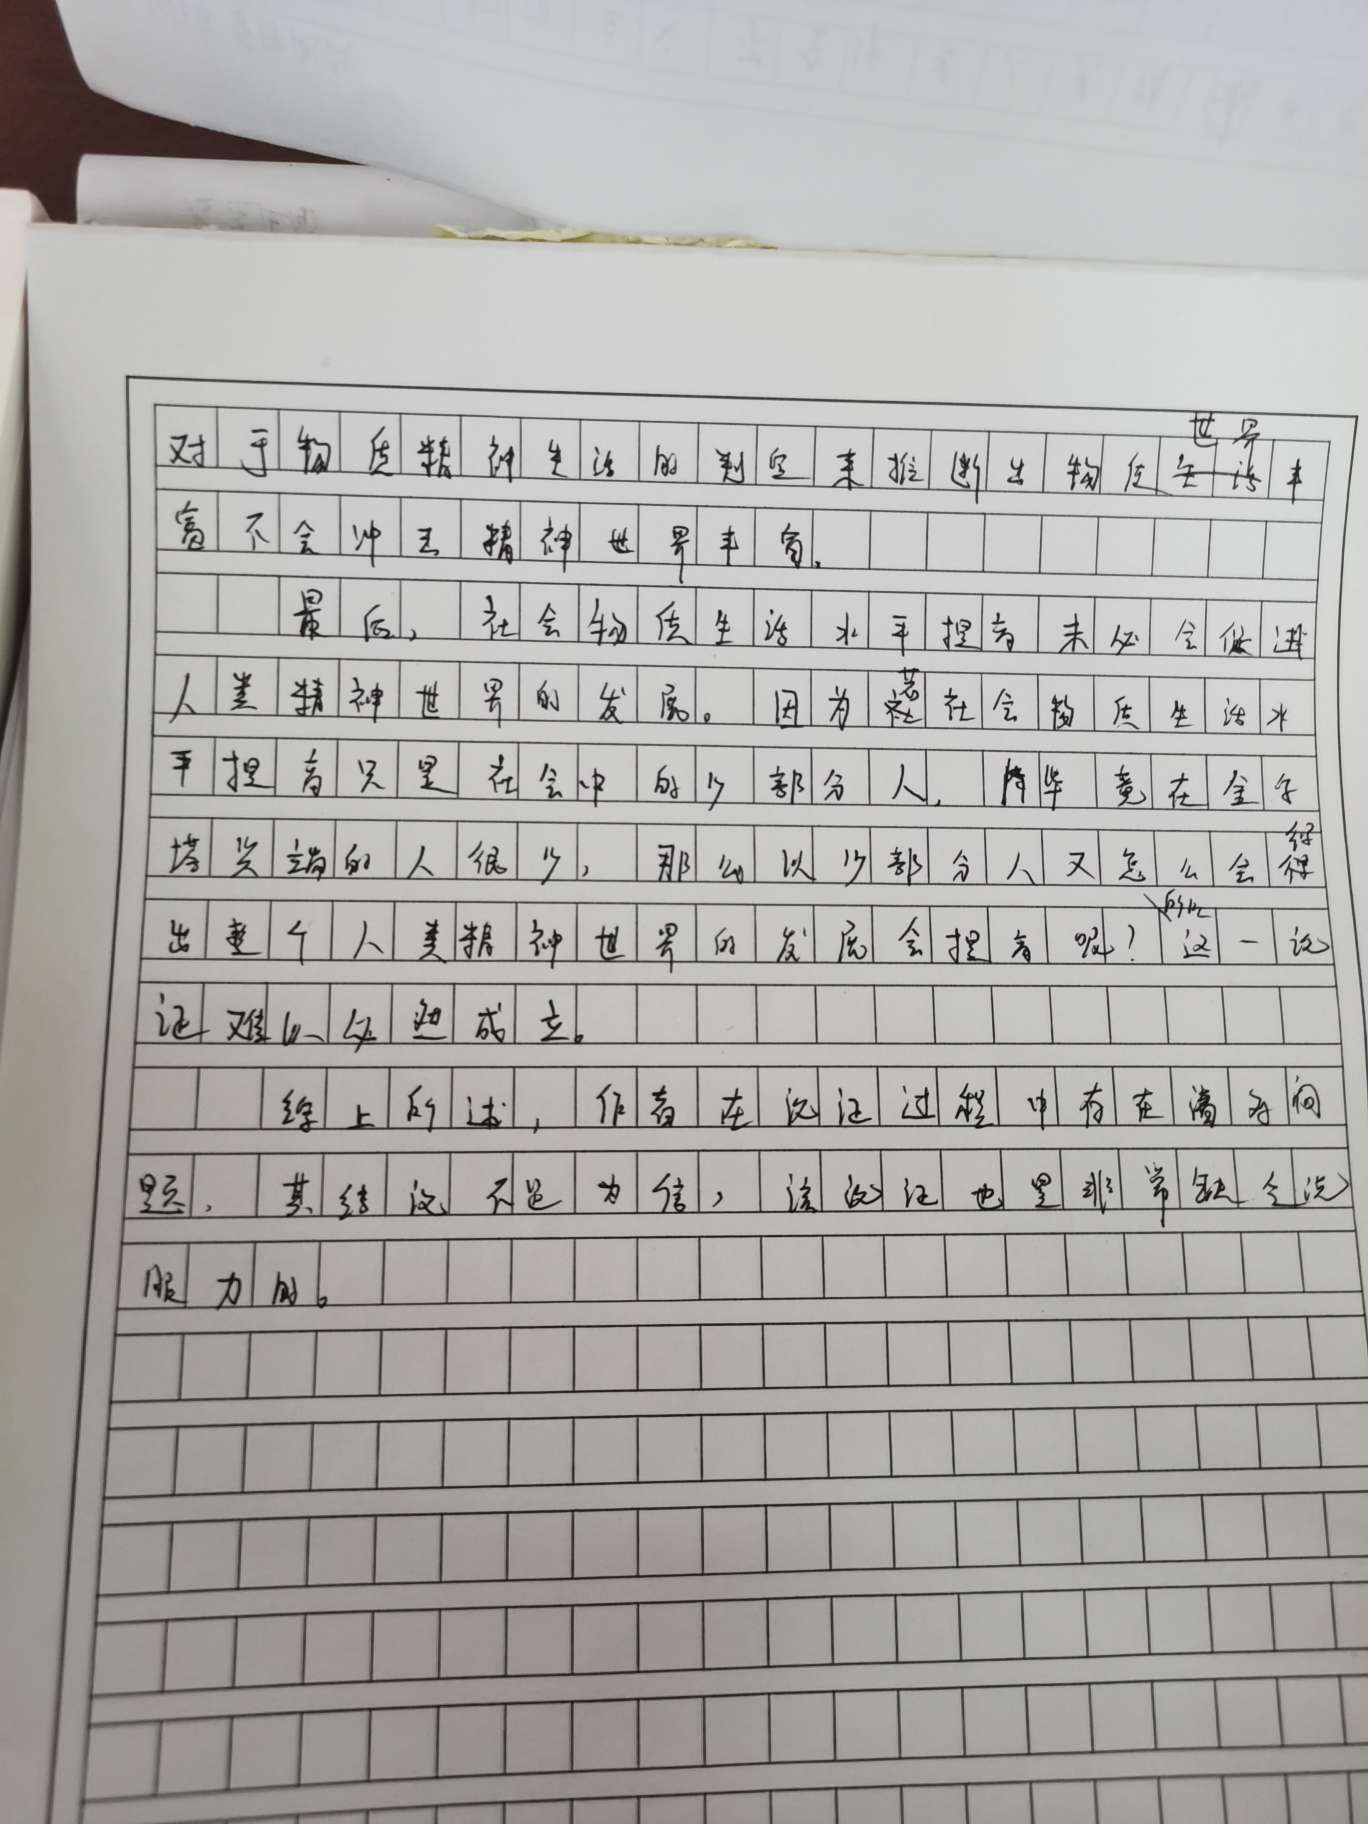 对于物质精神生活的判定来推断出物质世界丰
富不会冲击精神世界丰富。
最后，社会物质生活水平提高未必会促进
人类精神世界的发展。因为若社会物质生活水
平提高只是社会中的少部分人，毕竟在金字
塔尖端的人很少，那么以少部分人又怎么会得
出整个人类精神世界的发展会提高呢？所以这一论
证难以必然成立。
综上所述，作者在论证过程中存在诸多问
题，其结论不足为信，该论证也是非常缺乏说
服力的。